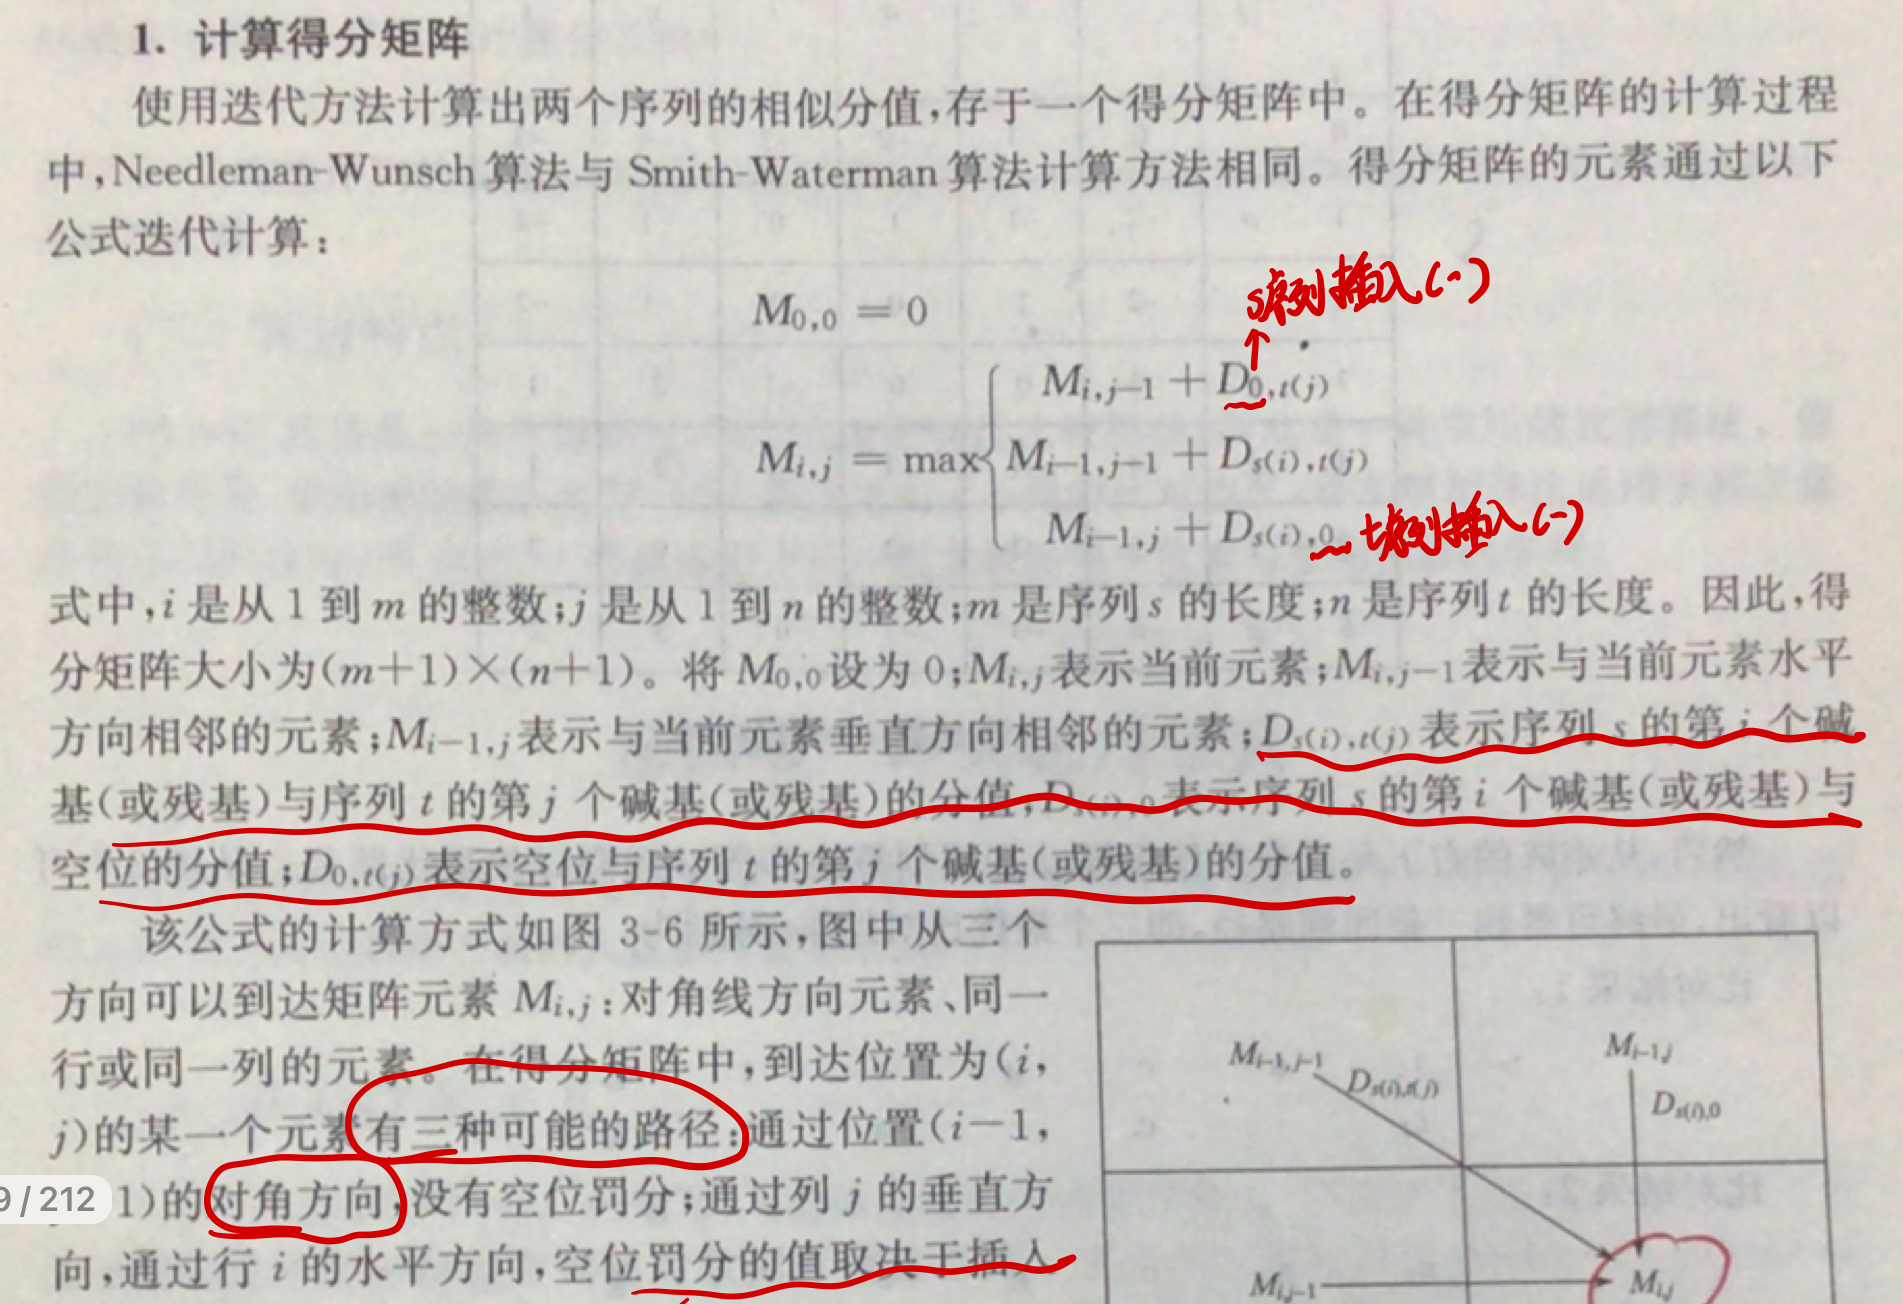 1. 计算得分矩阵
使用迭代方法计算出两个序列的相似分值,存于一个得分矩阵中。在得分矩阵的计算过程
中,Needleman-Wunsch 算法与 Smith-Waterman 算法计算方法相同。得分矩阵的元素通过以下
公式迭代计算:
s序列插入(-)
M0,0 = 0
Mi,j-1 + D0,t(j)
Mi,j = max{ Mi-1,j-1 + Ds(i),t(j)
Mi-1,j + Ds(i),0
t序列插入(-)
式中,i 是从 1 到 m 的整数;j 是从 1 到 n 的整数;m 是序列 s 的长度;n 是序列 t 的长度。因此,得
分矩阵大小为(m+1)×(n+1)。将 M0,0设为 0;Mi,j表示当前元素;Mi,j-1表示与当前元素水平
方向相邻的元素;Mi-1,j表示与当前元素垂直方向相邻的元素;Ds(i),t(j)表示序列 s 的第 i 个碱
基(或残基)与序列 t 的第 j 个碱基(或残基)的分值;Ds(i),0表示序列 s 的第 i 个碱基(或残基)与
空位的分值;D0,t(j)表示空位与序列 t 的第 j 个碱基(或残基)的分值。
该公式的计算方式如图 3-6 所示,图中从三个
方向可以到达矩阵元素 Mi,j:对角线方向元素、同一
行或同一列的元素。在得分矩阵中,到达位置为(i,
j)的某一个元素有三种可能的路径:通过位置(i-1,
1)的对角方向,没有空位罚分;通过列 j 的垂直方
向,通过行 i 的水平方向,空位罚分的值取决于插入
9 / 212
Mi-1,j-1
Ds(i),t(j)
Mi-1,j
Ds(i),0
Mi,j-1
Mi,j